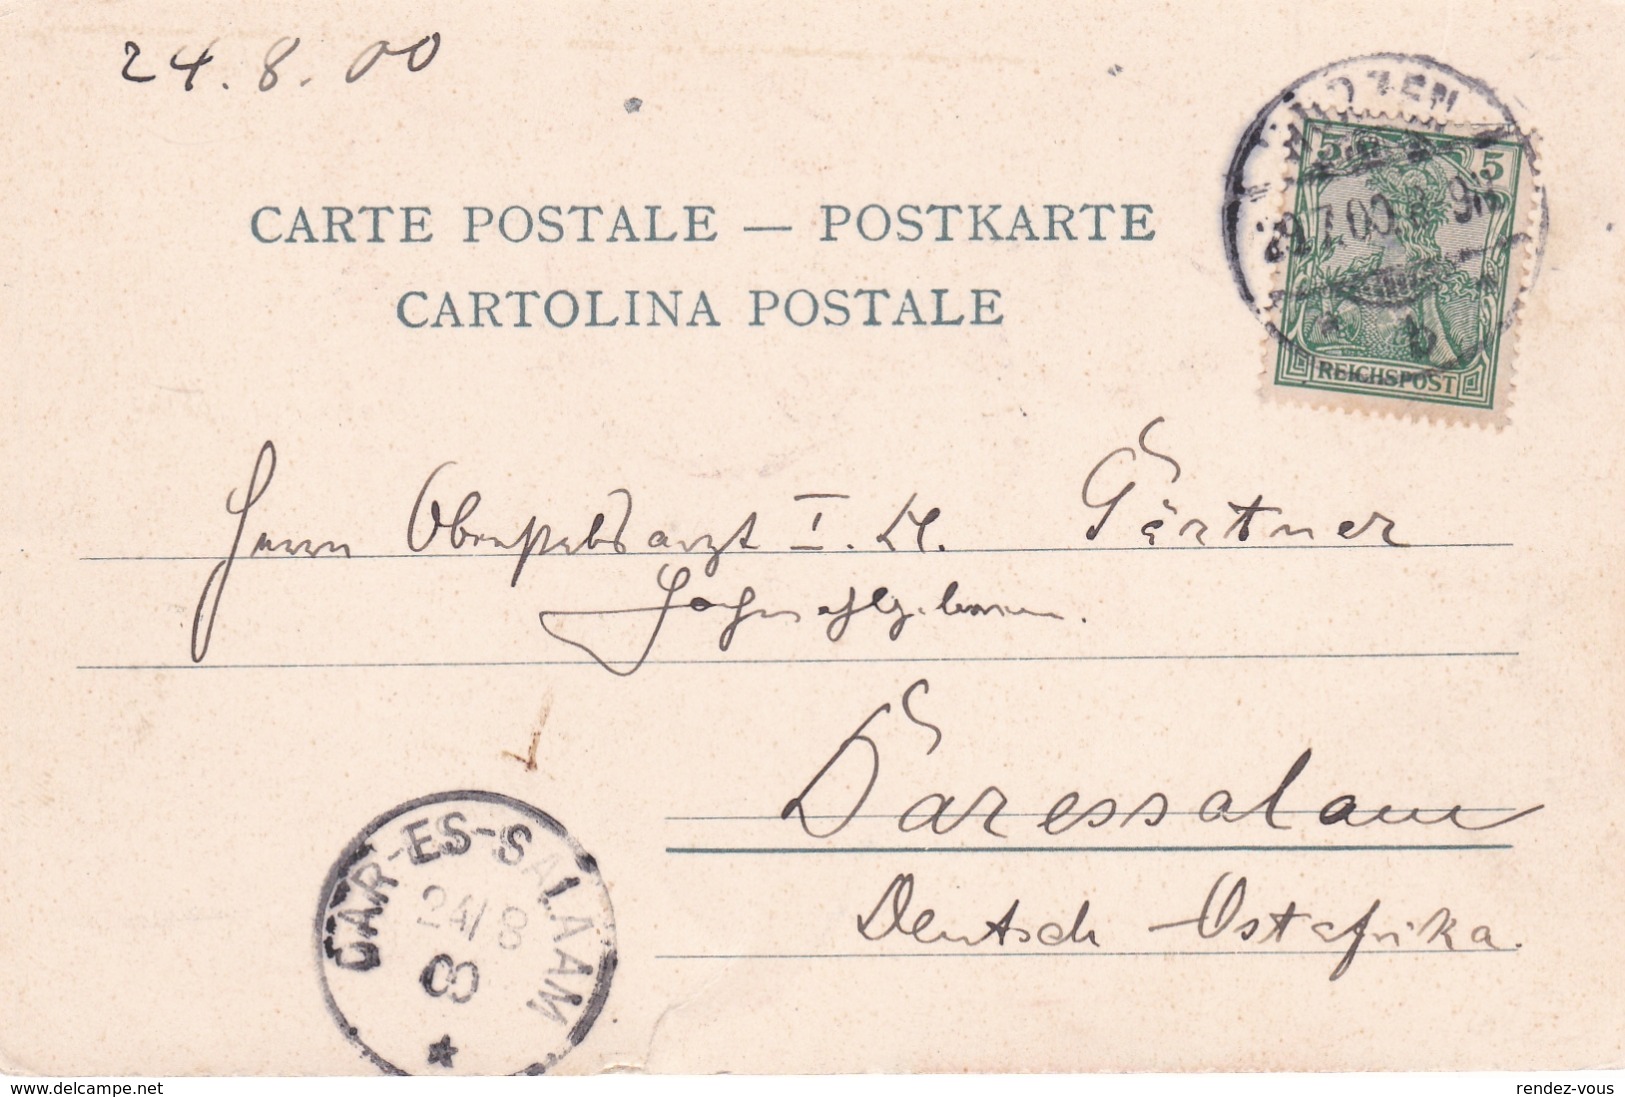 24.8.00
5 5
29.7.00. 9
CARTE POSTALE — POSTKARTE
CARTOLINA POSTALE
REICHSPOST
Herrn Oberstabsarzt I. Kl. Gärtner
Hochwohlgeboren.
Daressalam
Deutsch Ostafrika.
DAR-ES-SALAAM
24/8
00
www.delcampe.net
rendez-vous